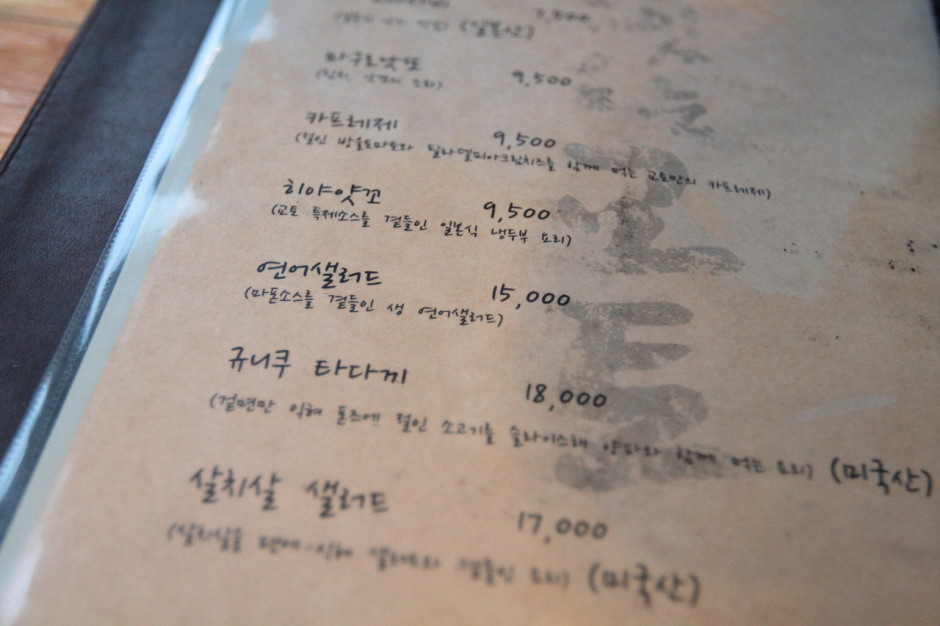 3,500
(일본산)
마구로낫또 9,500
카프레제 9,500
(절인 방울토마토와 필라델피아크림치즈를 함께 먹는 교토만의 카프레제)
히야얏꼬 9,500
(교토 특제소스를 곁들인 일본식 냉두부 요리)
연어샐러드 15,000
(마폰소스를 곁들인 생 연어샐러드)
규니쿠 타다끼 18,000
(겉면만 익혀 폰즈에 절인 소고기를 슬라이스해 양파와 함께 먹는 요리) (미국산)
살치살 샐러드 17,000
(살치살을 익혀 샐러드와 곁들인 요리) (미국산)